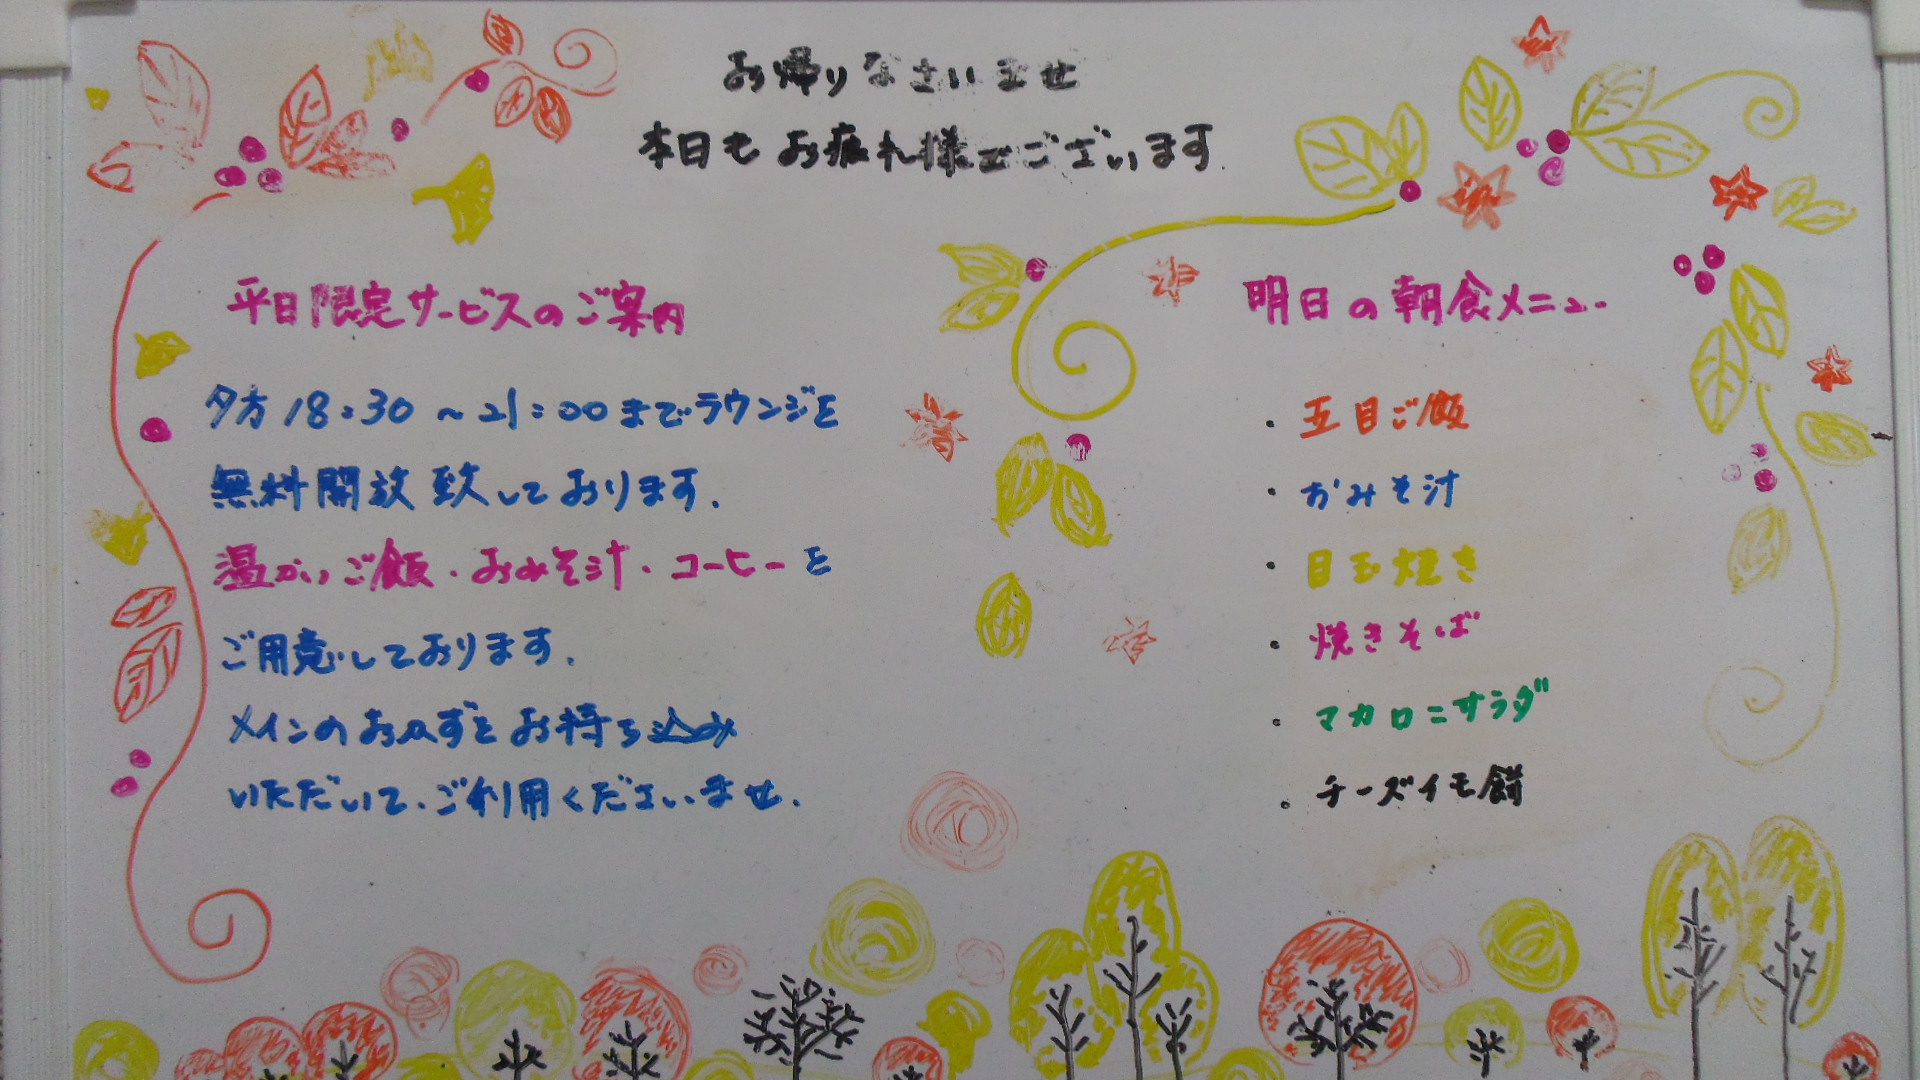 お帰りなさいませ
本日もお疲れ様でございます.
平日限定サービスのご案内
夕方18:30～21:00までラウンジを
無料開放致しております.
温かいご飯・おみそ汁・コーヒーを
ご用意しております.
メインのおかずをお持ち込み
いただいて、ご利用くださいませ.
明日の朝食メニュー
・五目ご飯
・おみそ汁
・目玉焼き
・焼きそば
・マカロニサラダ
・チーズイモ餅